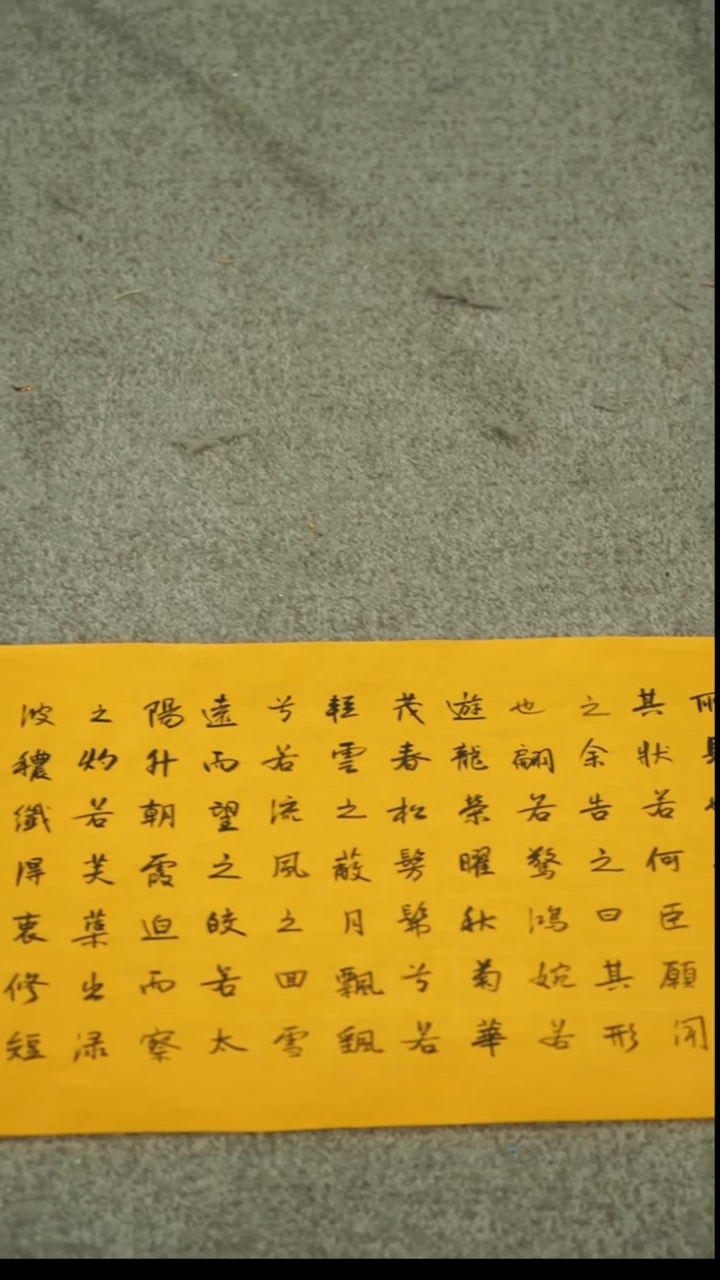 所
其狀若何臣願聞
之余告之曰其形
也翩若驚鴻婉若
遊龍榮曜秋菊華
茂春松髣髴兮若
輕雲之蔽月飄飄
兮若流風之回雪
遠而望之皎若太
陽升朝霞迫而察
之灼若芙蕖出淥
波穠纖得衷修短